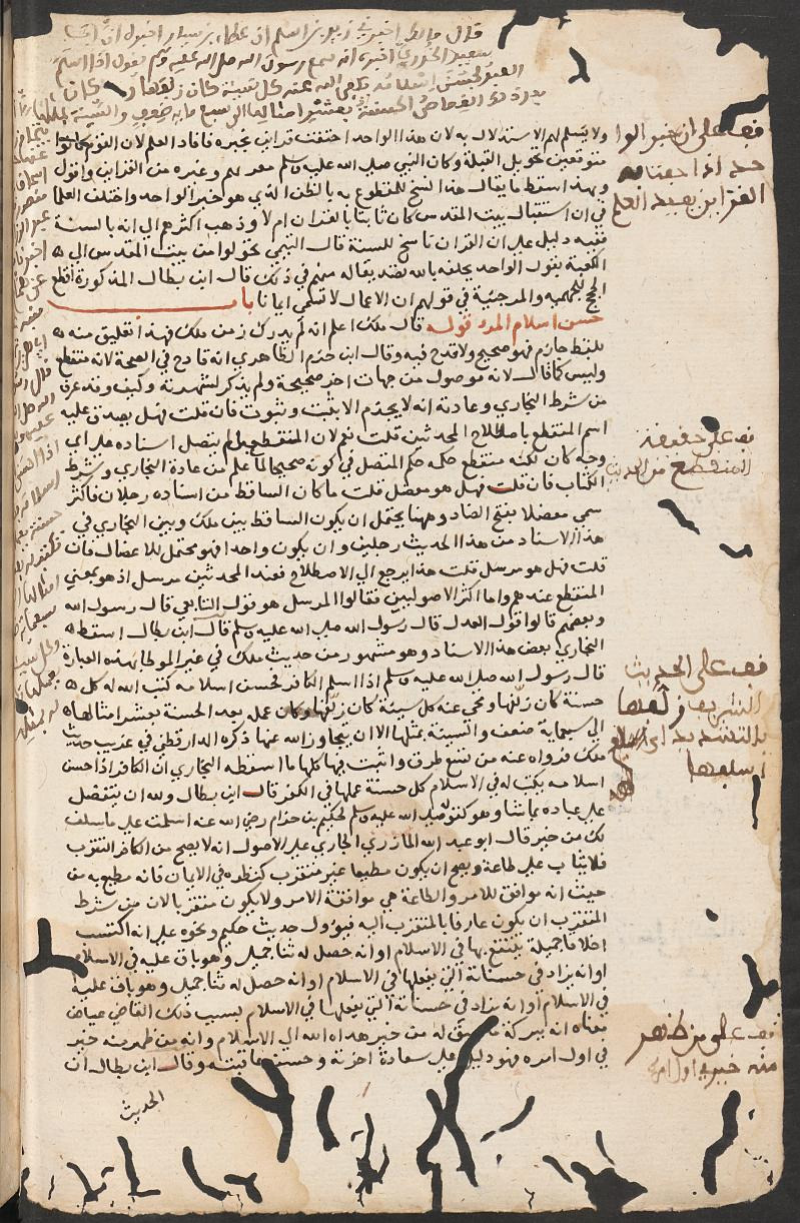 قال مالك اخبرني زيد بن اسلم ان عطاء بن يسار اخبره ان ابا
سعيد الخدري اخبره انه سمع رسول الله صلى الله عليه وسلم يقول اذا اسلم
العبد فحسن اسلامه يكفر الله عنه كل سيئة كان زلفها وكان
بعد ذلك القصاص الحسنة بعشر امثالها الى سبع ماية ضعف والسيئة بمثلها
ولا يسلم لهم الاستدلال به لان هذا الواحد احتفت قراين بخبره فافاد العلم لان القوم كانوا
متوقعين تحويل القبلة وكان النبي صلى الله عليه وسلم معهم وغيره من القراين واقول
وبهذا سقط ما يقال هذا نسخ للمقطوع به بالظن الذي هو خبر الواحد واختلف العلما
في ان استقبال بيت المقدس كان ثابتا بالقران ام لا وذهب اكثرهم الى انه بالسنة
ففيه دليل على ان القران ناسخ للسنة قال التيمي تحولوا من بيت المقدس الى
الكعبة بقول الواحد بحلفه بالله لصدقه منهم في ذلك قال ابن بطال المذكورة اقطع
الحجج للجهمية والمرجئية في قولهم ان الاعمال لا تسمى ايمانا باب
حسن اسلام المرء قوله قال ملك اعلم انه لم يدرك زمن ملك فهذا تعليق منه
بلفظ جازم فهو صحيح ولا قدح فيه وقال ابن حزم الظاهري انه قادح في الصحة لانه منقطع
وليس كما قال لانه موصول من جهات اخر صحيحة ولم يذكر لشهرته وكيف وقد عرف
من شرط البخاري وعادته انه لا يجزم الا بثبت وثبوت فان قلت فهل يصدق عليه
اسم المنقطع باصطلاح المحدثين قلت نعم لان المنقطع ما لم يتصل اسناده على اي
وجه كان لكنه منقطع حكمه حكم المتصل في كونه صحيحا لما علم من عادة البخاري وشرط
الكتاب فان قلت فهل هو معضل قلت ما كان الساقط من اسناده رجلان فاكثر
سمي معضلا بفتح الضاد وههنا يحتمل ان يكون الساقط بين ملك وبين البخاري في
هذا الاسناد من هذا الحديث رجلين وان يكون واحدا فهو محتمل للاعضال فان
قلت فهل هو مرسل قلت هذا يرجع الى الاصطلاح فعند المحدثين مرسل اذ هو بمعنى
المنقطع عندهم واما اكثر الاصوليين فقالوا المرسل هو قول التابعي قال رسول الله
وبعضهم قالوا قول العدل قال رسول الله صلى الله عليه وسلم قال ابن بطال اسقط
البخاري بعض هذا الاسناد وهو مشهور من حديث ملك في غير الموطا بهذه العبارة
قال رسول الله صلى الله عليه وسلم اذا اسلم الكافر فحسن اسلامه كتب الله له كل
حسنة كان زلفها ومحي عنه كل سيئة كان زلفها وكان عمله بعد الحسنة بعشر امثالها
الى سبعماية ضعف والسيئة بمثلها الا ان يتجاوز الله عنها ذكره الدارقطني في غريب حديث
ملك فرواه عنه من تسع طرق واثبت فيها كلها ما اسقطه البخاري ان الكافر اذا حسن
اسلامه يكتب له في الاسلام كل حسنة عملها في الكفر قال ابن بطال ولله ان يتفضل
على عباده بما شا وهو كقوله صلى الله عليه وسلم لحكيم بن حزام رضي الله عنه اسلمت على ما سلف
لك من خير قال ابو عبد الله المازري الجاري على الاصول انه لا يصح من الكافر التقرب
فلا يثاب على طاعة ويصح ان يكون مطيعا غير متقرب كنظره في الايمان فانه مطيع به من
حيث انه موافق للامر والطاعة هي موافقة الامر ولا يكون متقربا لان من شرط
المتقرب ان يكون عارفا بالمتقرب اليه فيؤول حديث حكيم ونحوه على انه اكتسب
اخلاقا جميلة ينتفع بها في الاسلام او انه حصل له ثنا جميل وهو باق عليه في الاسلام
او انه يزاد في حسناته التي يفعلها في الاسلام او انه حصل له ثنا جميل وهو باق عليه
في الاسلام او انه يزاد في حسناته التي يفعلها في الاسلام بسبب ذلك القاضي عياض
معناه انه ببركة ما سبق له من خير هداه الله الى الاسلام وانه من ظهر منه خير
في اول امره فهو دليل على سعادة اخرته وحسن عاقبته وقال ابن بطال ان
الحديث
قف على ان خبر الواحد
اذا احتفت به
القراين يفيد العلم
قف على حقيقة
المنقطع من الحديث
قف على الحديث
الشريف زلفها
بالتشديد اي
اسلفها
قف على من ظهر
منه خير في اول امره